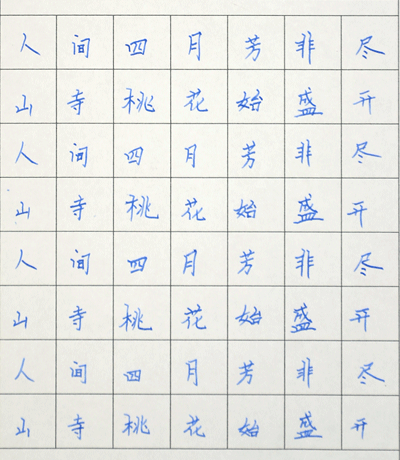 人间四月芳非尽
山寺桃花始盛开
人间四月芳非尽
山寺桃花始盛开
人间四月芳非尽
山寺桃花始盛开
人间四月芳非尽
山寺桃花始盛开